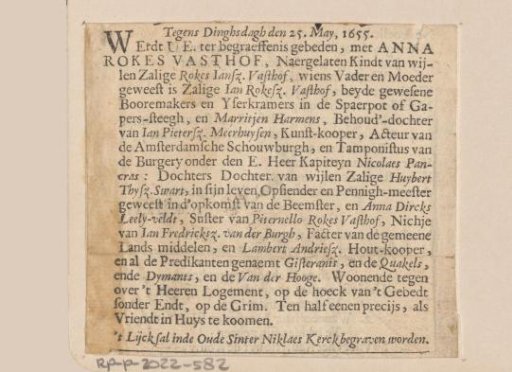 Tegens Dinghsdagh den 25. May, 1655.
WErdt U E. ter begraeffenis gebeden, met ANNA
ROKES VASTHOF, Naergelaten Kindt van wij-
len Zalige Rokes Iansz. Vasthof, wiens Vader en Moeder
geweest is Zalige Ian Rokesz. Vasthof, beyde gewesene
Booremakers en Yserkramers in de Spaerpot of Ga-
pers-steegh, en Marritjen Harmens, Behoud'-dochter
van Ian Pietersz. Meerhuysen, Kunst-kooper, Acteur van
de Amsterdamsche Schouwburgh, en Tamponistus van
de Burgery onder den E. Heer Kapiteyn Nicolaes Pan-
cras: Dochters Dochter van wijlen Zalige Huybert
Thysz. Swart, in sijn leven Opsiender en Pennigh-meester
geweest in d'opkomst van de Beemster, en Anna Dircks
Leely-veldt, Suster van Piternello Rokes Vasthof, Nichje
van Ian Fredricksz. van der Burgh, Facter van de gemeene
Lands middelen, en Lambert Andriesz. Hout-kooper,
en al de Predikanten genaemt Gisteranis, en de Quakels,
ende Dymants, en de Van der Hooge. Woonende tegen
over 't Heeren Logement, op de hoeck van 't Gebedt
sonder Endt, op de Grim. Ten half eenen precijs, als
Vriendt in Huys te koomen.
't Lijck sal inde Oude Sinter Niklaes Kerck begraven worden.
RP-P-2022-582